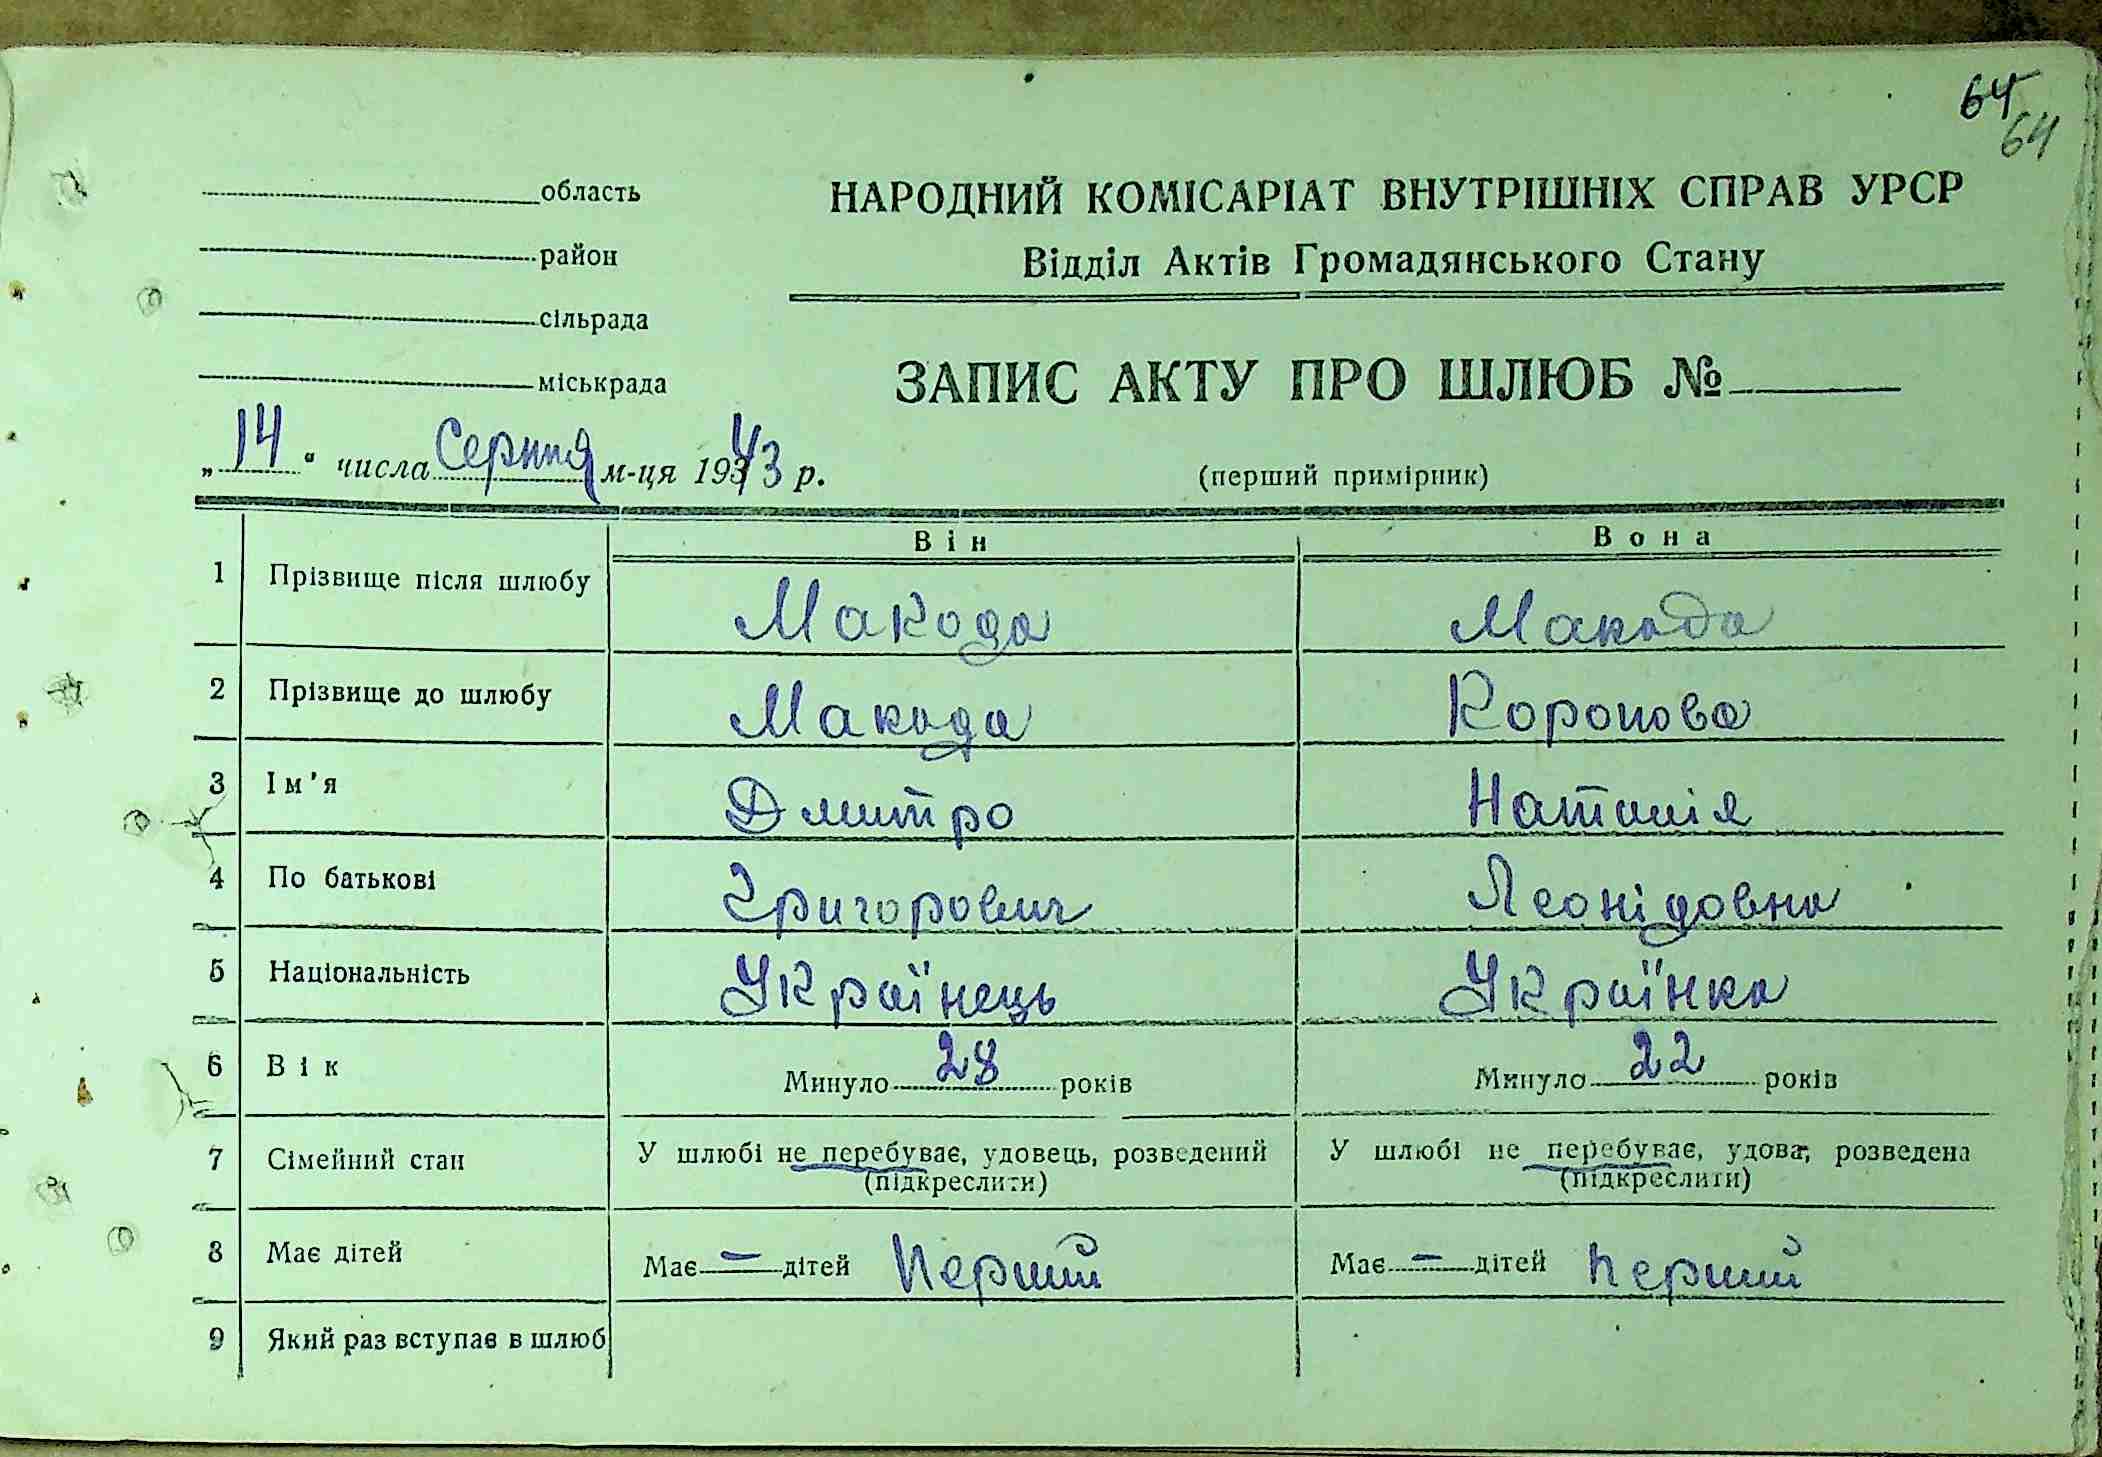 64
64
область
район
сільрада
міськрада
НАРОДНИЙ КОМІСАРІАТ ВНУТРІШНІХ СПРАВ УРСР
Відділ Актів Громадянського Стану
ЗАПИС АКТУ ПРО ШЛЮБ №
„14“ числа Серпня м-ця 1943 р.
(перший примірник)
Він Вона
1 Прізвище після шлюбу Макода Макода
2 Прізвище до шлюбу Макода Коропова
3 Ім'я Дмитро Наталія
4 По батькові Григорович Леонідовна
5 Національність Українець Українка
6 Вік Минуло 28 років Минуло 22 років
7 Сімейний стан У шлюбі не перебуває, удовець, розведений У шлюбі не перебуває, удова, розведена
(підкреслити) (підкреслити)
8 Має дітей Має — дітей Перший Має — дітей Перший
9 Який раз вступає в шлюб